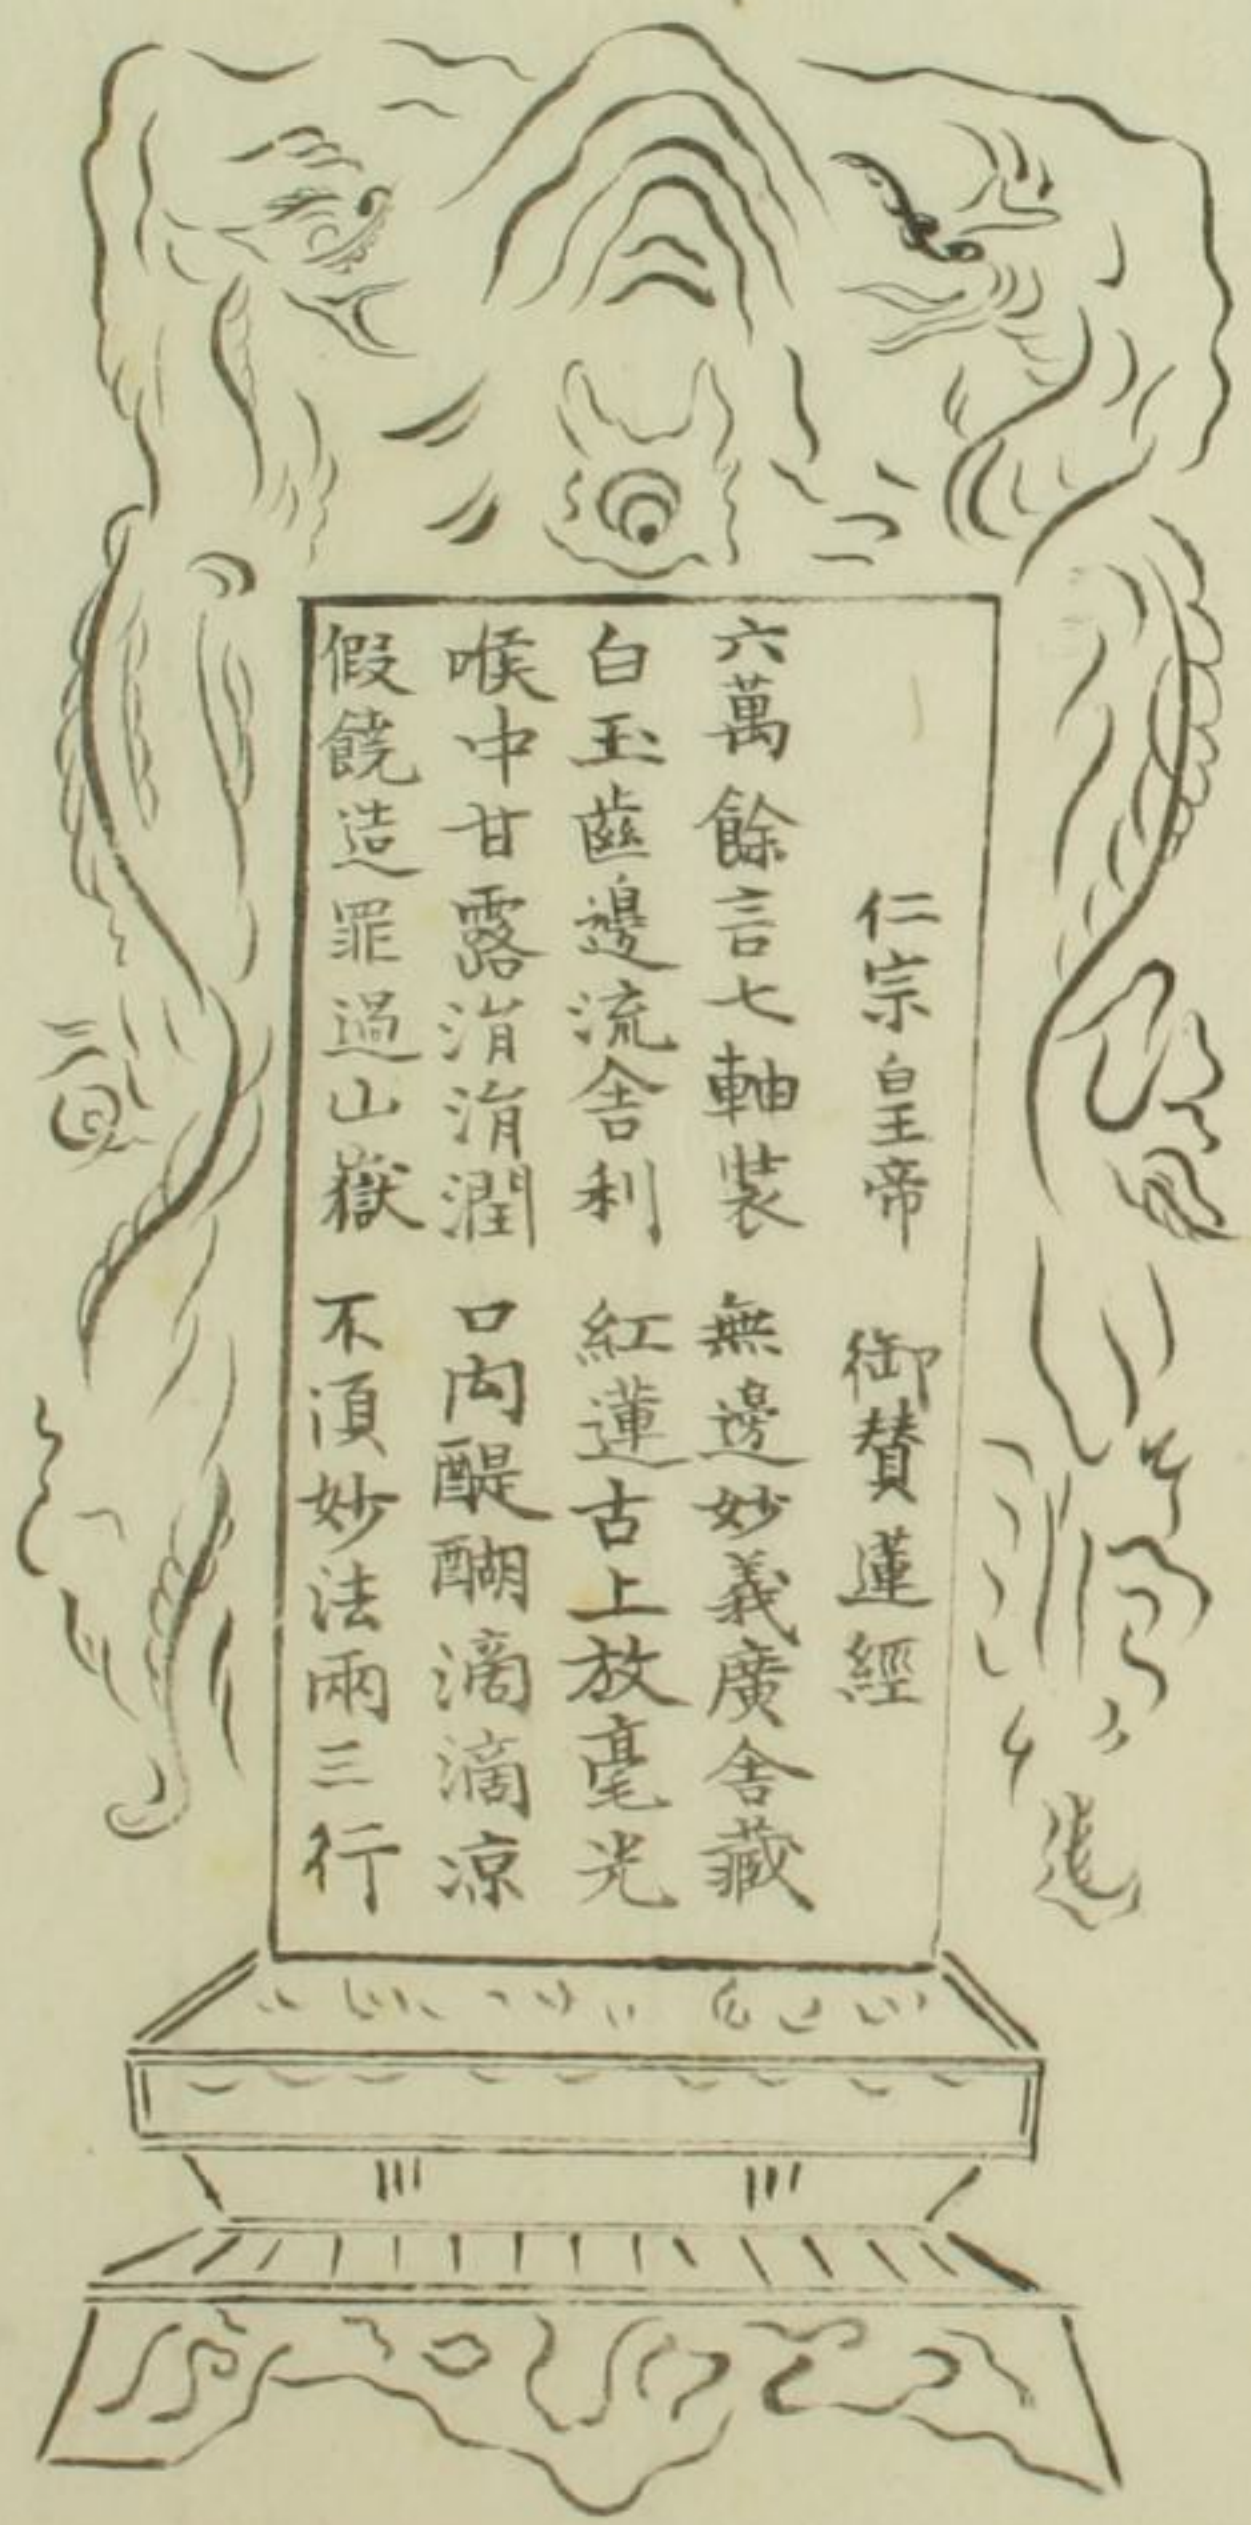 仁宗皇帝 御賛蓮經
六萬餘言七軸裝 無邊妙義廣舍藏
白玉齒邊流舍利 紅蓮古上放毫光
喉中甘露涓涓潤 口內醍醐滴滴凉
假饒造罪過山嶽 不須妙法兩三行